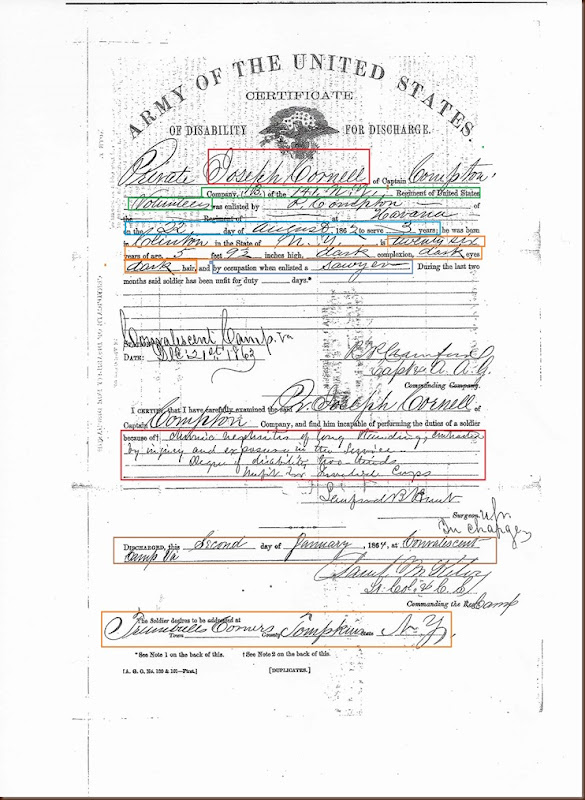 ARMY OF THE UNITED STATES.
CERTIFICATE
OF DISABILITY FOR DISCHARGE.
Private Joseph Cornell, of Captain Compton,
Company, (B,) of the 141, N.Y. Regiment of United States
Volunteers was enlisted by of
the Regiment of at Havana
on the 22 day of August 1862 to serve 3 years; he was born
in Clinton in the State of N. Y. is twenty six
years of age, 5 feet inches high, dark complexion, dark eyes
dark hair, and by occupation when enlisted a Sawyer During the last two
months said soldier has been unfit for duty days.*
Convalescent Camp, Va
DATE: Dec. 21st 1863
Capt & A. A. G.
Commanding Company.
I CERTIFY, that I have carefully examined the said Pr. Joseph Cornell of
Captain Compton Company, and find him incapable of performing the duties of a soldier
because of† chronic nephritis of long standing,
by injury and exposure in the service.
Degree of disability two thirds
Unfit for Invalid Corps
Surgeon
In charge
DISCHARGED, this Second day of January, 1864, at Convalescent
Camp Va
Lt. Col.
Commanding the Camp
The Soldier desires to be addressed at
Town Trumbulls Corners County Tompkins State N. Y.
*See Note 1 on the back of this. †See Note 2 on the back of this.
[A. G. O. No. 100 & 101—First.] [DUPLICATES.]